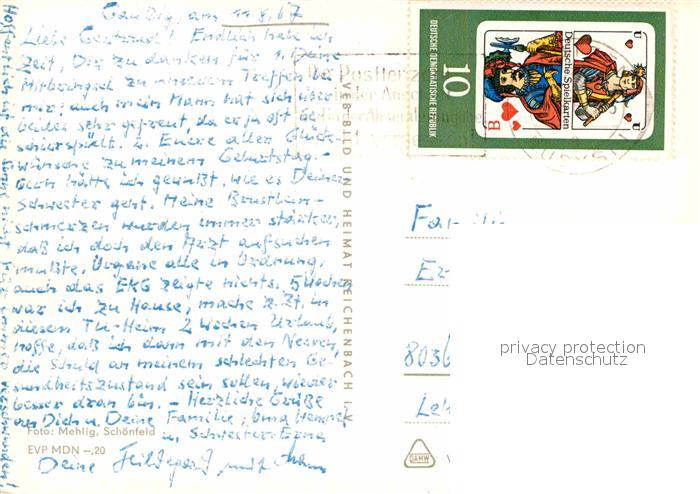 Gaußig, am 11.8.67
Liebe Gertraud! Endlich habe ich
Zeit, Dir zu danken für 1. Deine
Mitbringsel zu unserem Treffen bei
mir: auch mein Mann hat sich über
beides sehr gefreut, da er ja oft Ge-
schirr spült. 2. Euere aller Glück-
wünsche zu meinem Geburtstag. -
Gern hätte ich gewußt, wie es Deiner
Schwester geht. Meine Brustbein-
schmerzen wurden immer stärker,
daß ich doch den Arzt aufsuchen
mußte. Organe alle in Ordnung,
auch das EKG zeigte nichts. 5 Wochen
war ich zu Hause, mache z. Zt. in
diesem TU-Heim 2 Wochen Urlaub,
hoffe, daß ich dann mit den Nerven,
die Schuld an meinem schlechten Ge-
sundheitszustand sein sollen, wieder
besser dran bin. - Herzliche Grüße
an Dich u. Deine Familie,
u. Schwester Erna
Deine Hildegard mit
Hoffentlich ist
Foto: Mehlig, Schönfeld
EVP MDN -,20
VEB BILD UND HEIMAT REICHENBACH i. V.
Postleitz
DEUTSCHE DEMOKRATISCHE REPUBLIK
10
Deutsche Spielkarten
B
U
U
Fa
8036
privacy protection
Datenschutz
DAMW